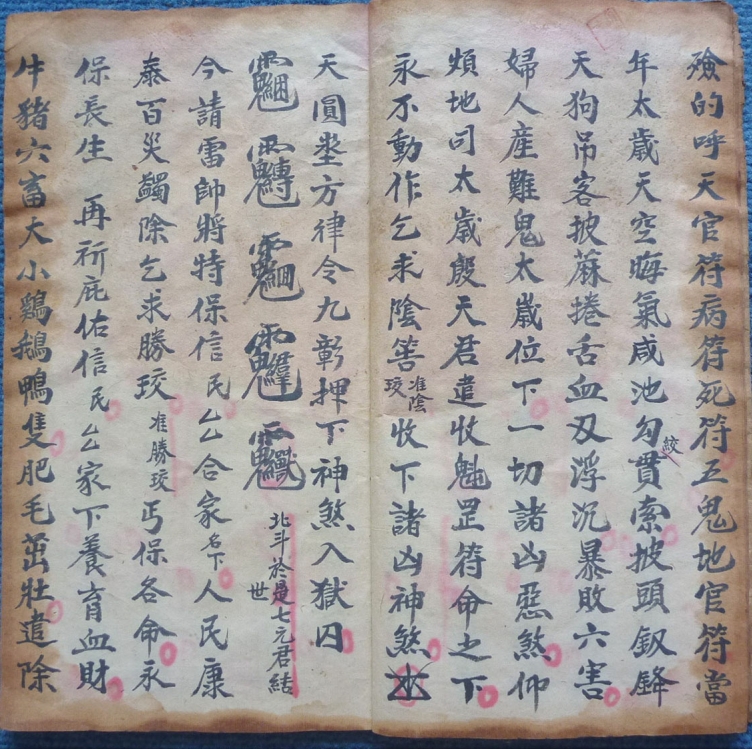 殮的呼天官符病符死符五鬼地官符當
年太歲天空晦氣咸池勾絞貫索披頭釼鋒
天狗吊客披蔴捲舌血刄浮沉暴敗六害
婦人產難鬼太歲位下一切諸凶惡煞仰
煩地司太歲殷天君遣收魁罡符命之下
永不動作乞求陰筶准陰珓收下諸凶神煞
天圓垄方律令九彰押下神煞入獄囚
北斗於是七元君結世
今請雷帥將特保信民厶厶合家名下人民康
泰百災蠲除乞求勝珓准勝珓丐保各命永
保長生 再祈庇佑信民厶家下養育血財
牛豬六畜大小鷄鵝鴨隻肥毛茁壯遣除